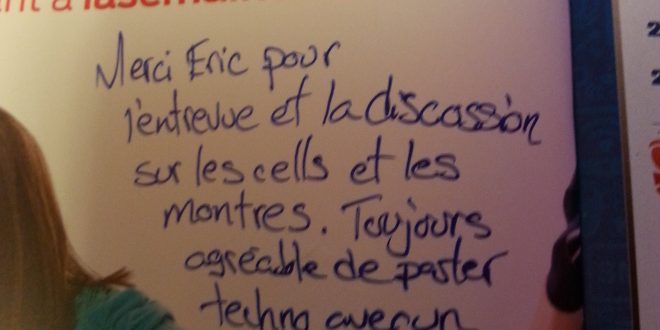 Merci Eric pour
l'entrevue et la discussion
sur les cells et les
montres. Toujours
agréable de parler
techno avec un
2
2